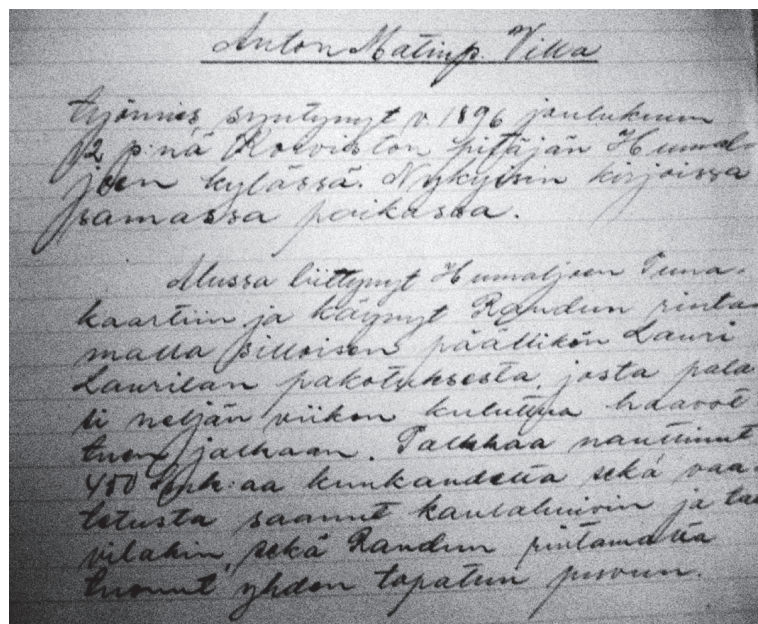 Anton Matinp. Villa
työmies syntynyt v. 1896 joulukuun
12 p:nä Koiviston pitäjän Humal-
joen kylässä. Nykyisin kirjoissa
samassa paikassa.
Alussa liittynyt Humaljoen Puna-
kaartiin ja käynyt Raudun rinta-
malla silloisen päällikön Lauri
Laurilan pakotuksesta, josta pala-
si neljän viikon kuluttua haavoit
tuen jalkaan. Palkkaa nauttinut
450 mk:aa kuukaudelta sekä vaa-
tetusta saanut kaulaliinan ja
sekä Raudun rintamalta
tuonut yhden tapatun puvun.